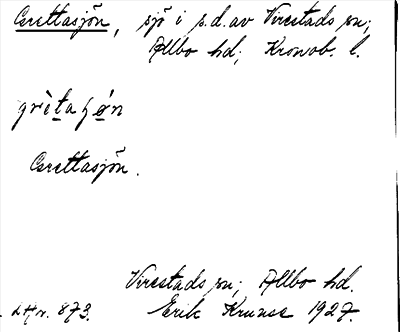 Grettasjön, sjö i s.d. av Virestads sn;
Allbo hd; Kronob. l.
grètasǿn
Grettasjön.
Virestads sn; Allbo hd.
Erik Kruuse 1927.